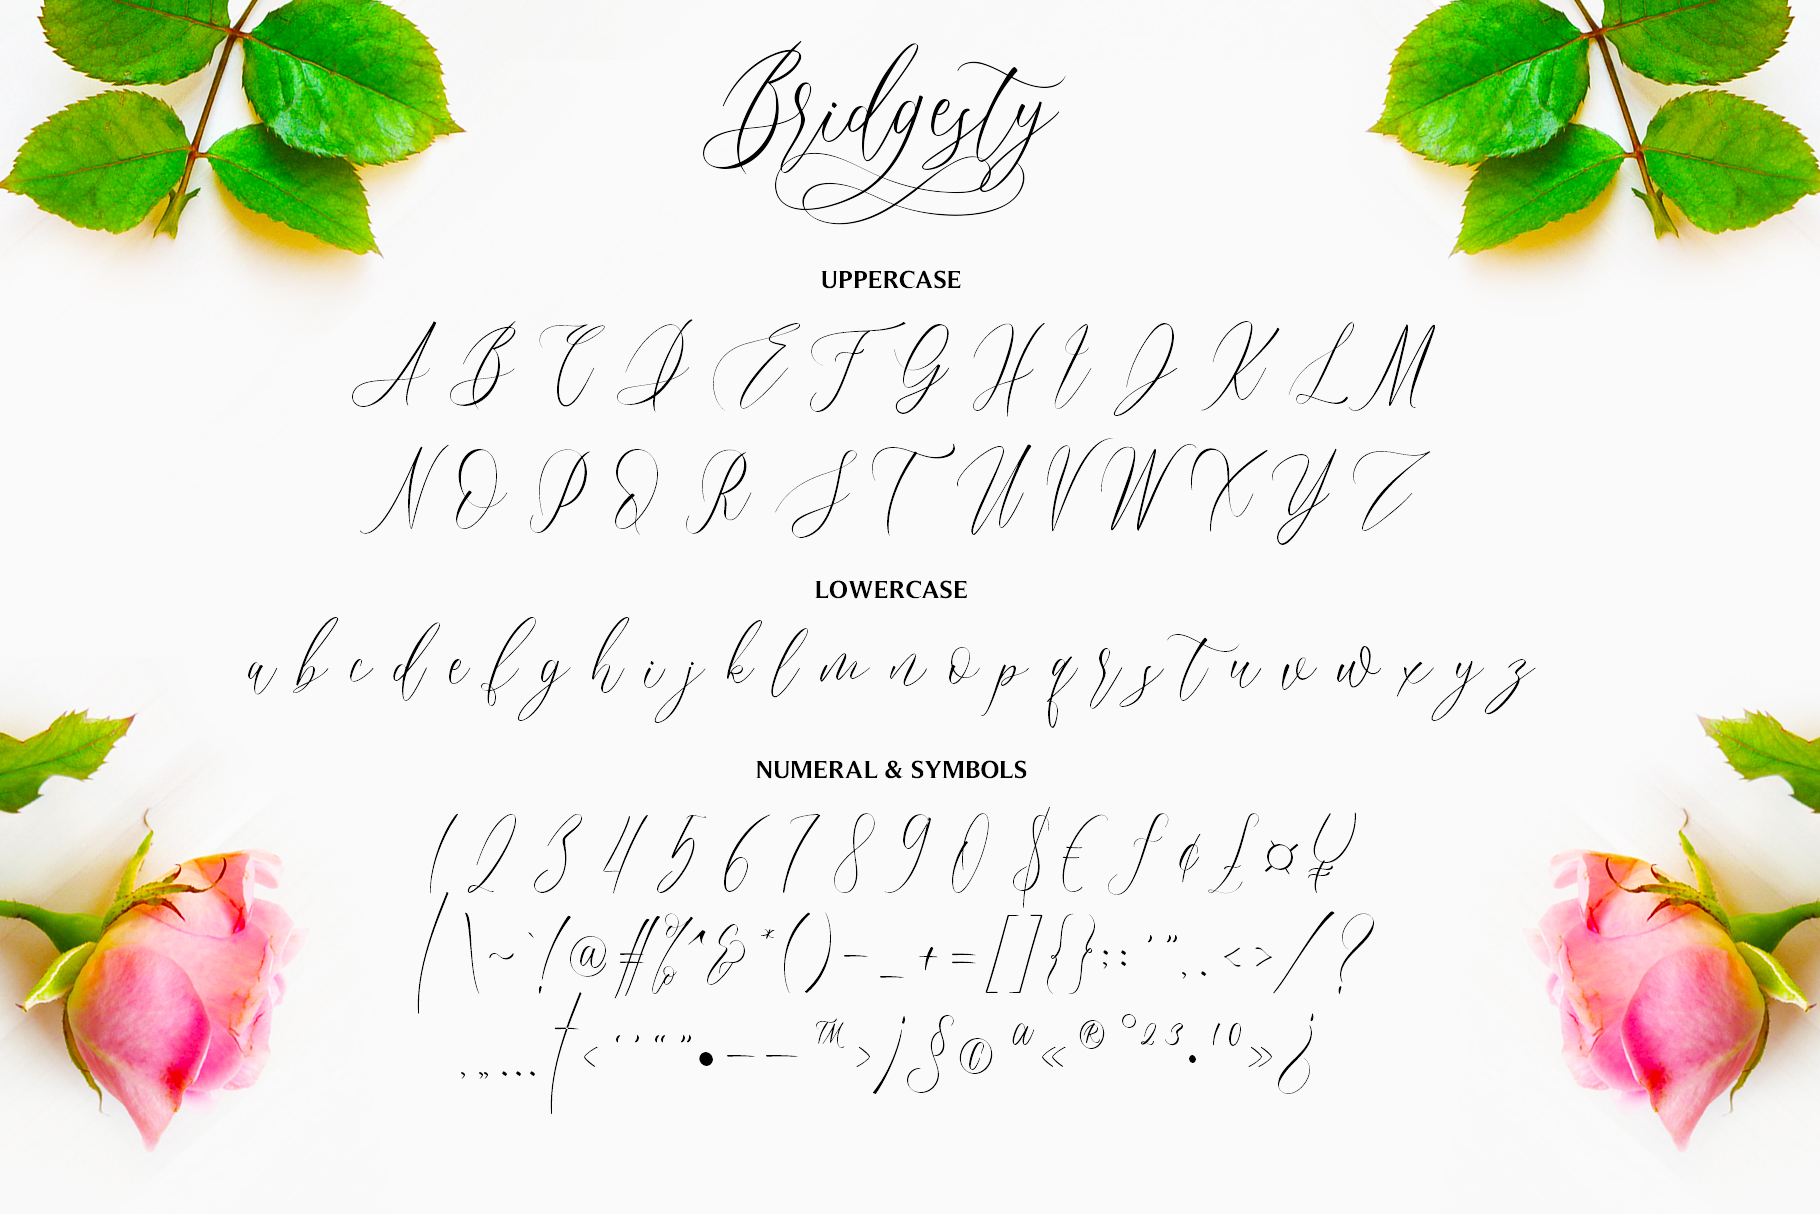 Bridgesty
UPPERCASE
A B C D E F G H I J K L M
N O P Q R S T U V W X Y Z
LOWERCASE
a b c d e f g h i j k l m n o p q r s t u v w x y z
NUMERAL & SYMBOLS
1 2 3 4 5 6 7 8 9 0 $ € ƒ ¢ £ ¤ ¥
| \ ~ ` ! @ # % ^ & * ( ) – _ + = [ ] { } ; : ' " , . < > / ?
‚ „ … † ‹ ‘ ’ “ ” • – — ™ › ¡ § © ª « ® ° ² ³ · ¹ º » ¿